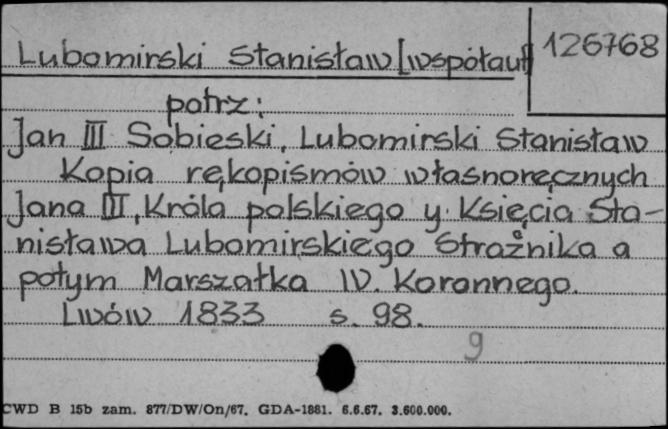 Lubomirski Stanisław [współaut] 126768
patrz:
Jan III Sobieski, Lubomirski Stanisław
Kopia rękopismów własnoręcznych
Jana III, Króla polskiego y Księcia Sta-
nisława Lubomirskiego Strażnika a
potym Marszałka W. Koronnego.
Lwów 1833 s. 98.
9
CWD B 15b zam. 877/DW/On/67. GDA-1881. 6.6.67. 3.600.000.